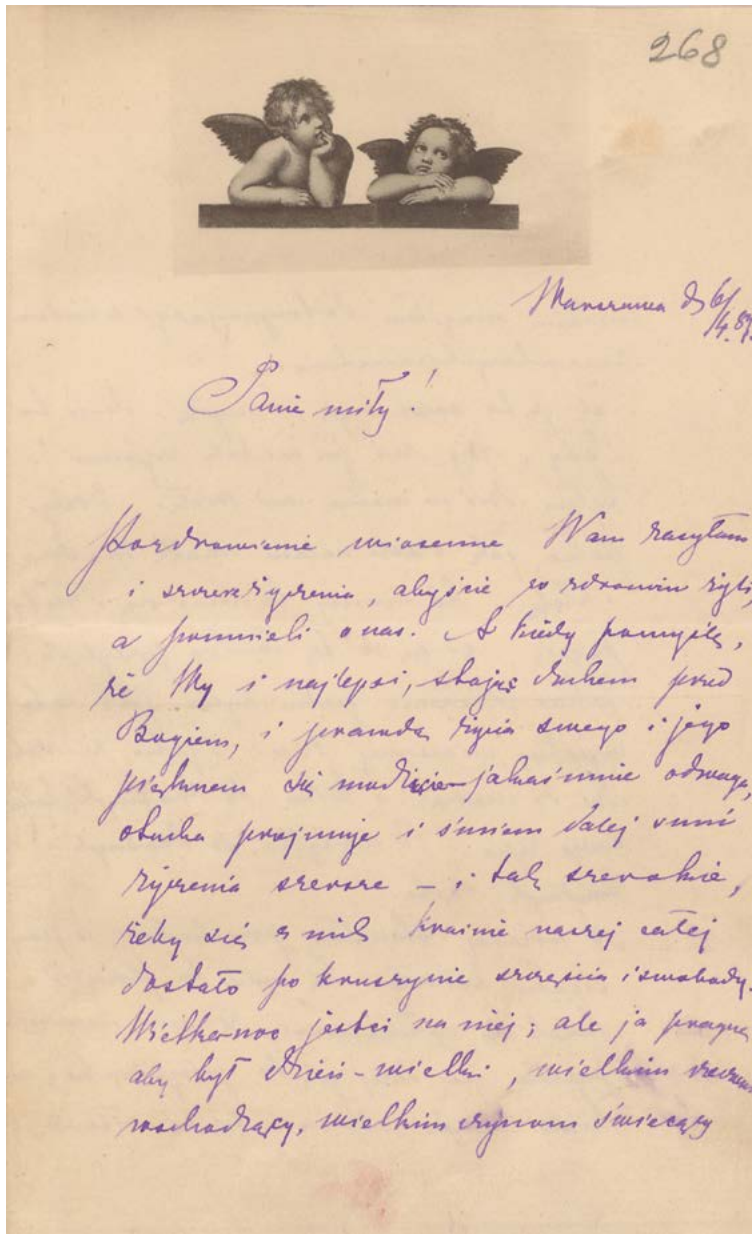 268
Warszawa d 6/4.89.
Panie miły!
Pozdrowienie wiosenne Wam zasyłam
i szczere życzenia, abyście w zdrowiu żyli,
a pomnieli o nas. A kiedy pomyślę,
że Wy i najlepsi, stojąc duchem przed
Bogiem, i prawdą życia swego i jego
pięknem się modlicie – jakaś mnie odwaga,
otucha przejmuje i śmiem dalej snuć
życzenia szersze – i tak szerokie,
żeby się z nich krainie naszej całej
dostało po kruszynie szczęścia i swobody.
Wielka-noc jest na niej; ale ja pragnę
aby był dzień-wielki, wielkim
wschodzący, wielkim czynom świecący